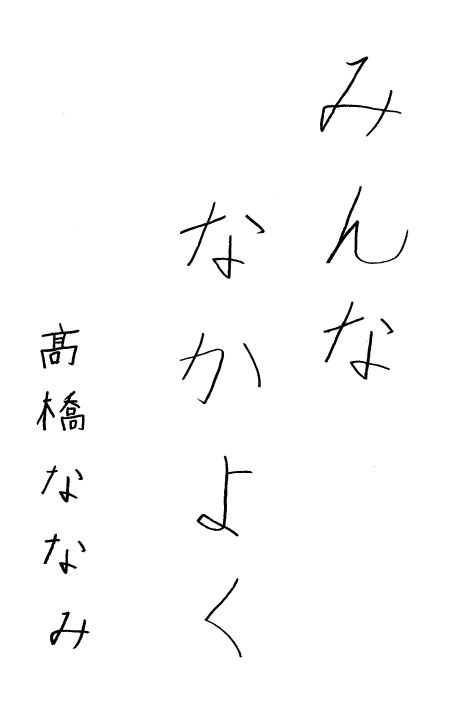 みんな
なかよく
髙橋ななみ